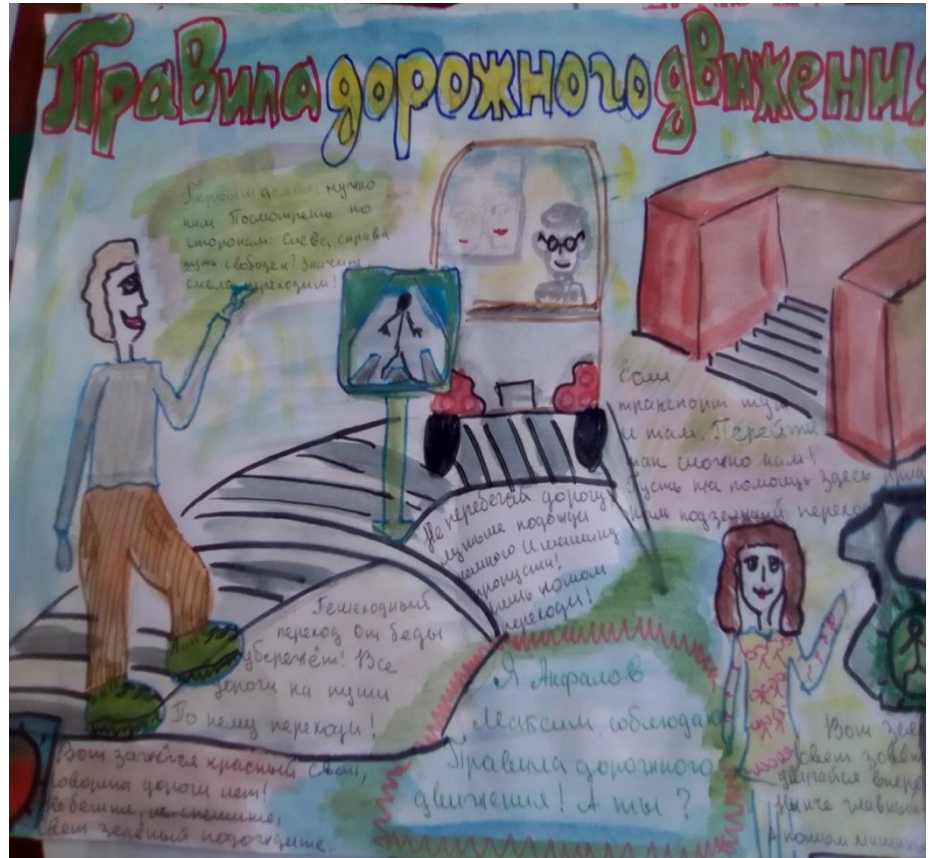 Правила дорожного движения
Первым делом нужно
нам Посмотреть по
сторонам: Слева, справа
путь свободен? Значит,
смело переходим!
Если
транспорт тут
и там, Перейти
как сложно нам!
Пусть на помощь здесь
нам подземный
Не перебегай дорогу,
лучше подожди
немного И машину
пропусти!
Лишь потом
переходи!
Пешеходный
переход От беды
убережёт! Все
дороги на пути
По нему переходи!
Я Анфалов
Максим, соблюдаю
Правила дорожного
движения! А ты?
Вот зажёгся красный свет,
дороги нет!
не спешите,
свет зелёный подождите.
Вот
свет зовёт
двигайся
главный
А потом